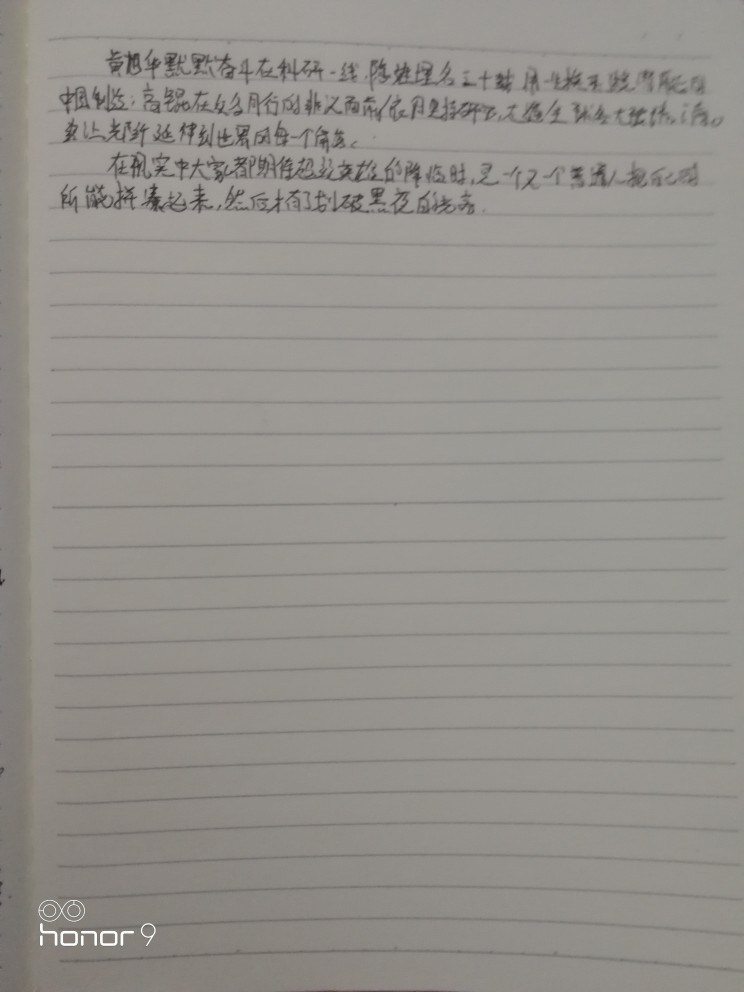 黄旭华默默奋斗在科研一线,隐姓埋名三十载 用一生换来
中国制造;高锟在众多同行的非议面前依旧坚持研究,大
要让光纤延伸到世界的每一个角落。
在现实中大家都期待超级英雄的降临时,是一个又一个普通人把自己的
所能拼凑起来,然后才有了划破黑夜的光亮.
honor 9